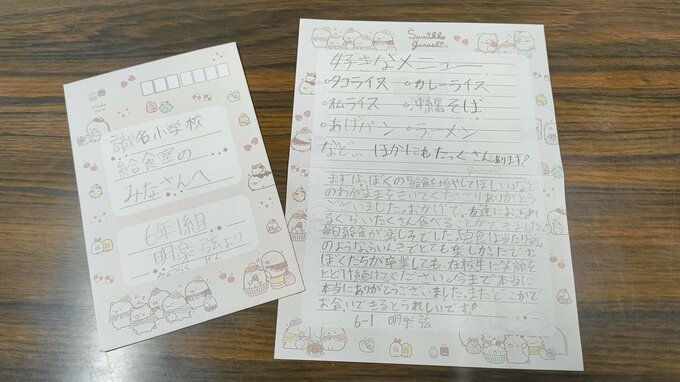 識名小学校
給食室の
みなさんへ
6年1組
明楽弦より
Sumikko
gurashi
好きなメニュー
・タコライス ・カレーライス
・オムライス ・沖縄そば
・あげパン ・ラーメン
など… ほかにもたっくさんあります!
まずは、ぼくの 増やしてほしいなど
のわがままをきいてくださりありがとう
ございました。おかげで、友達におどろかれ
るぐらいたくさん食べることができました。
毎日給食が楽しみでした。 食は当たり前
のような でとても楽しかったです。
ぼくたちが卒業しても、在校生に笑顔を
とどけ続けてください。今まで本当に
本当にありがとうございました。またどこかで
お会いできるとうれしいです!
6-1 明楽弦